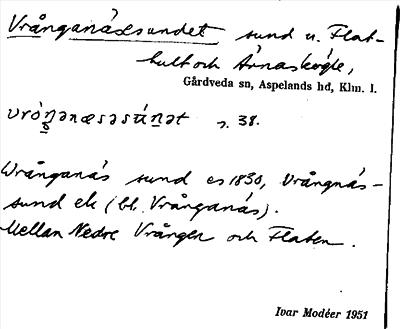 Vrånganäsesundet sund n. Flat-
hult och Årnaskögle,
Gårdveda sn, Aspelands hd, Klm. l.
s. 38.
Vrånganäs sund es 1830, Vrångnäs-
sund ek (bl. Vrånganäs).
Mellan Nedre Vrången och Flaten.
Ivar Modéer 1951